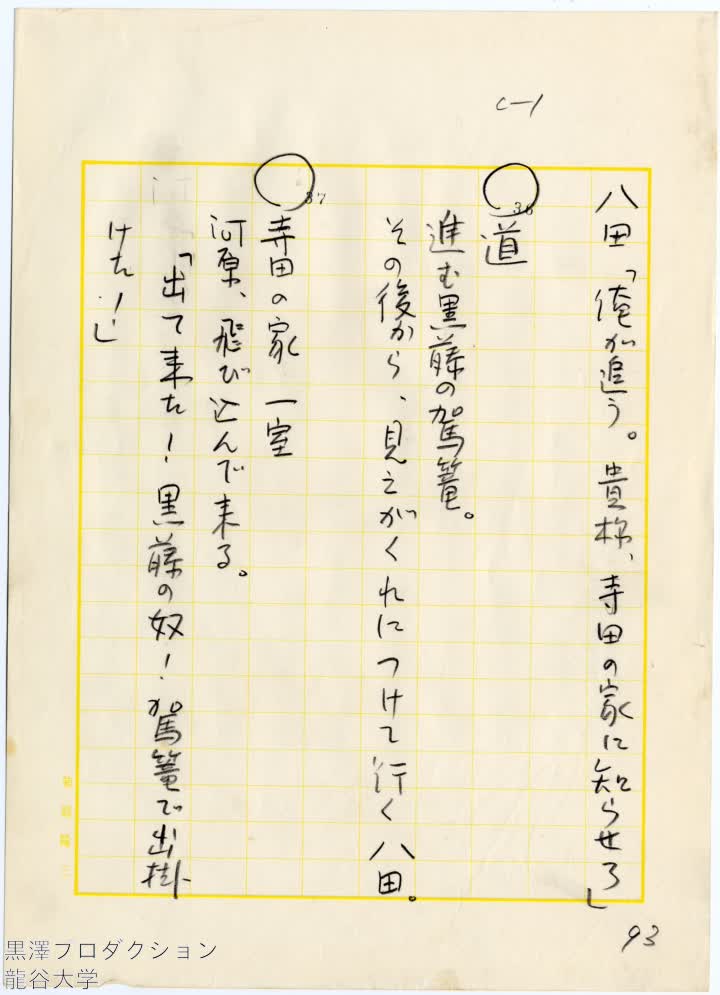 C-1
八田「俺が追う。貴様、寺田の家に知らせろ」
○36
道
進む黒藤の駕篭。
その後から、見えがくれにつけて行く八田。
○37
寺田の家 一室
河原、飛び込んで来る。
「出て来た！黒藤の奴！駕篭で出掛
けた！」
93
菊島隆三
黒澤プロダクション
龍谷大学